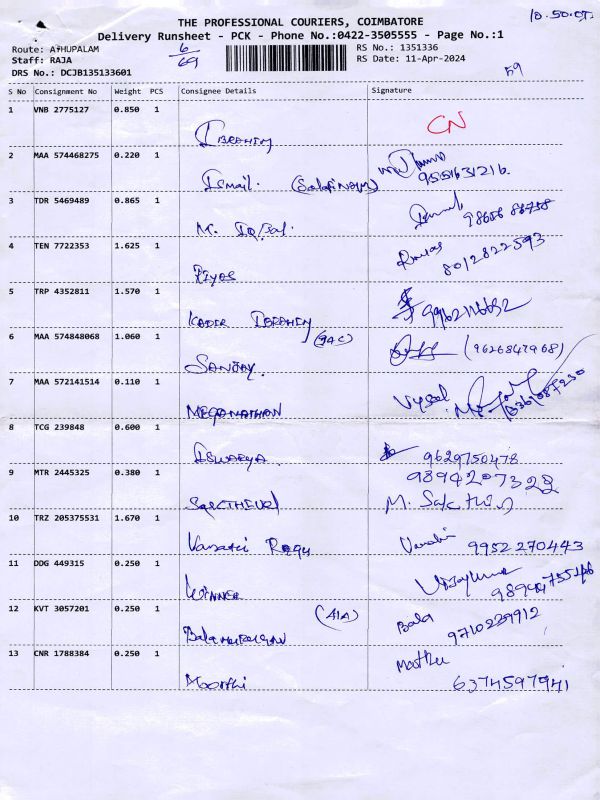 10.50.
THE PROFESSIONAL COURIERS, COIMBATORE
Delivery Runsheet - PCK - Phone No.:0422-3505555 - Page No.:1
Route: ATHUPALAM 6/69 RS No.: 1351336
Staff: RAJA RS Date: 11-Apr-2024
DRS No.: DCJB135133601 59
S No Consignment No Weight PCS Consignee Details Signature
1 VNB 2775127 0.850 1
IBRAHIM CN
2 MAA 574468275 0.220 1
ISMAIL. 9551631216.
3 TDR 5469489 0.865 1
M. IQBAL
4 TEN 7722353 1.625 1
RIYAS 8012822593
5 TRP 4352811 1.570 1
KADER IBRAHIM
6 MAA 574848068 1.060 1 (9AC)
SANJAY. (9626847968)
7 MAA 572141514 0.110 1
MEGANATHAN
8 TCG 239848 0.600 1
ISWARYA. 9629750478
9 MTR 2445325 0.380 1 9894207322
M. Sakthivel
10 TRZ 205375531 1.670 1
9952270443
11 DDG 449315 0.250 1
WINNER
12 KVT 3057201 0.250 1 (A1A) Bala
BALAMURUGAN 9710229912
13 CNR 1788384 0.250 1
Moorthi 6374597941